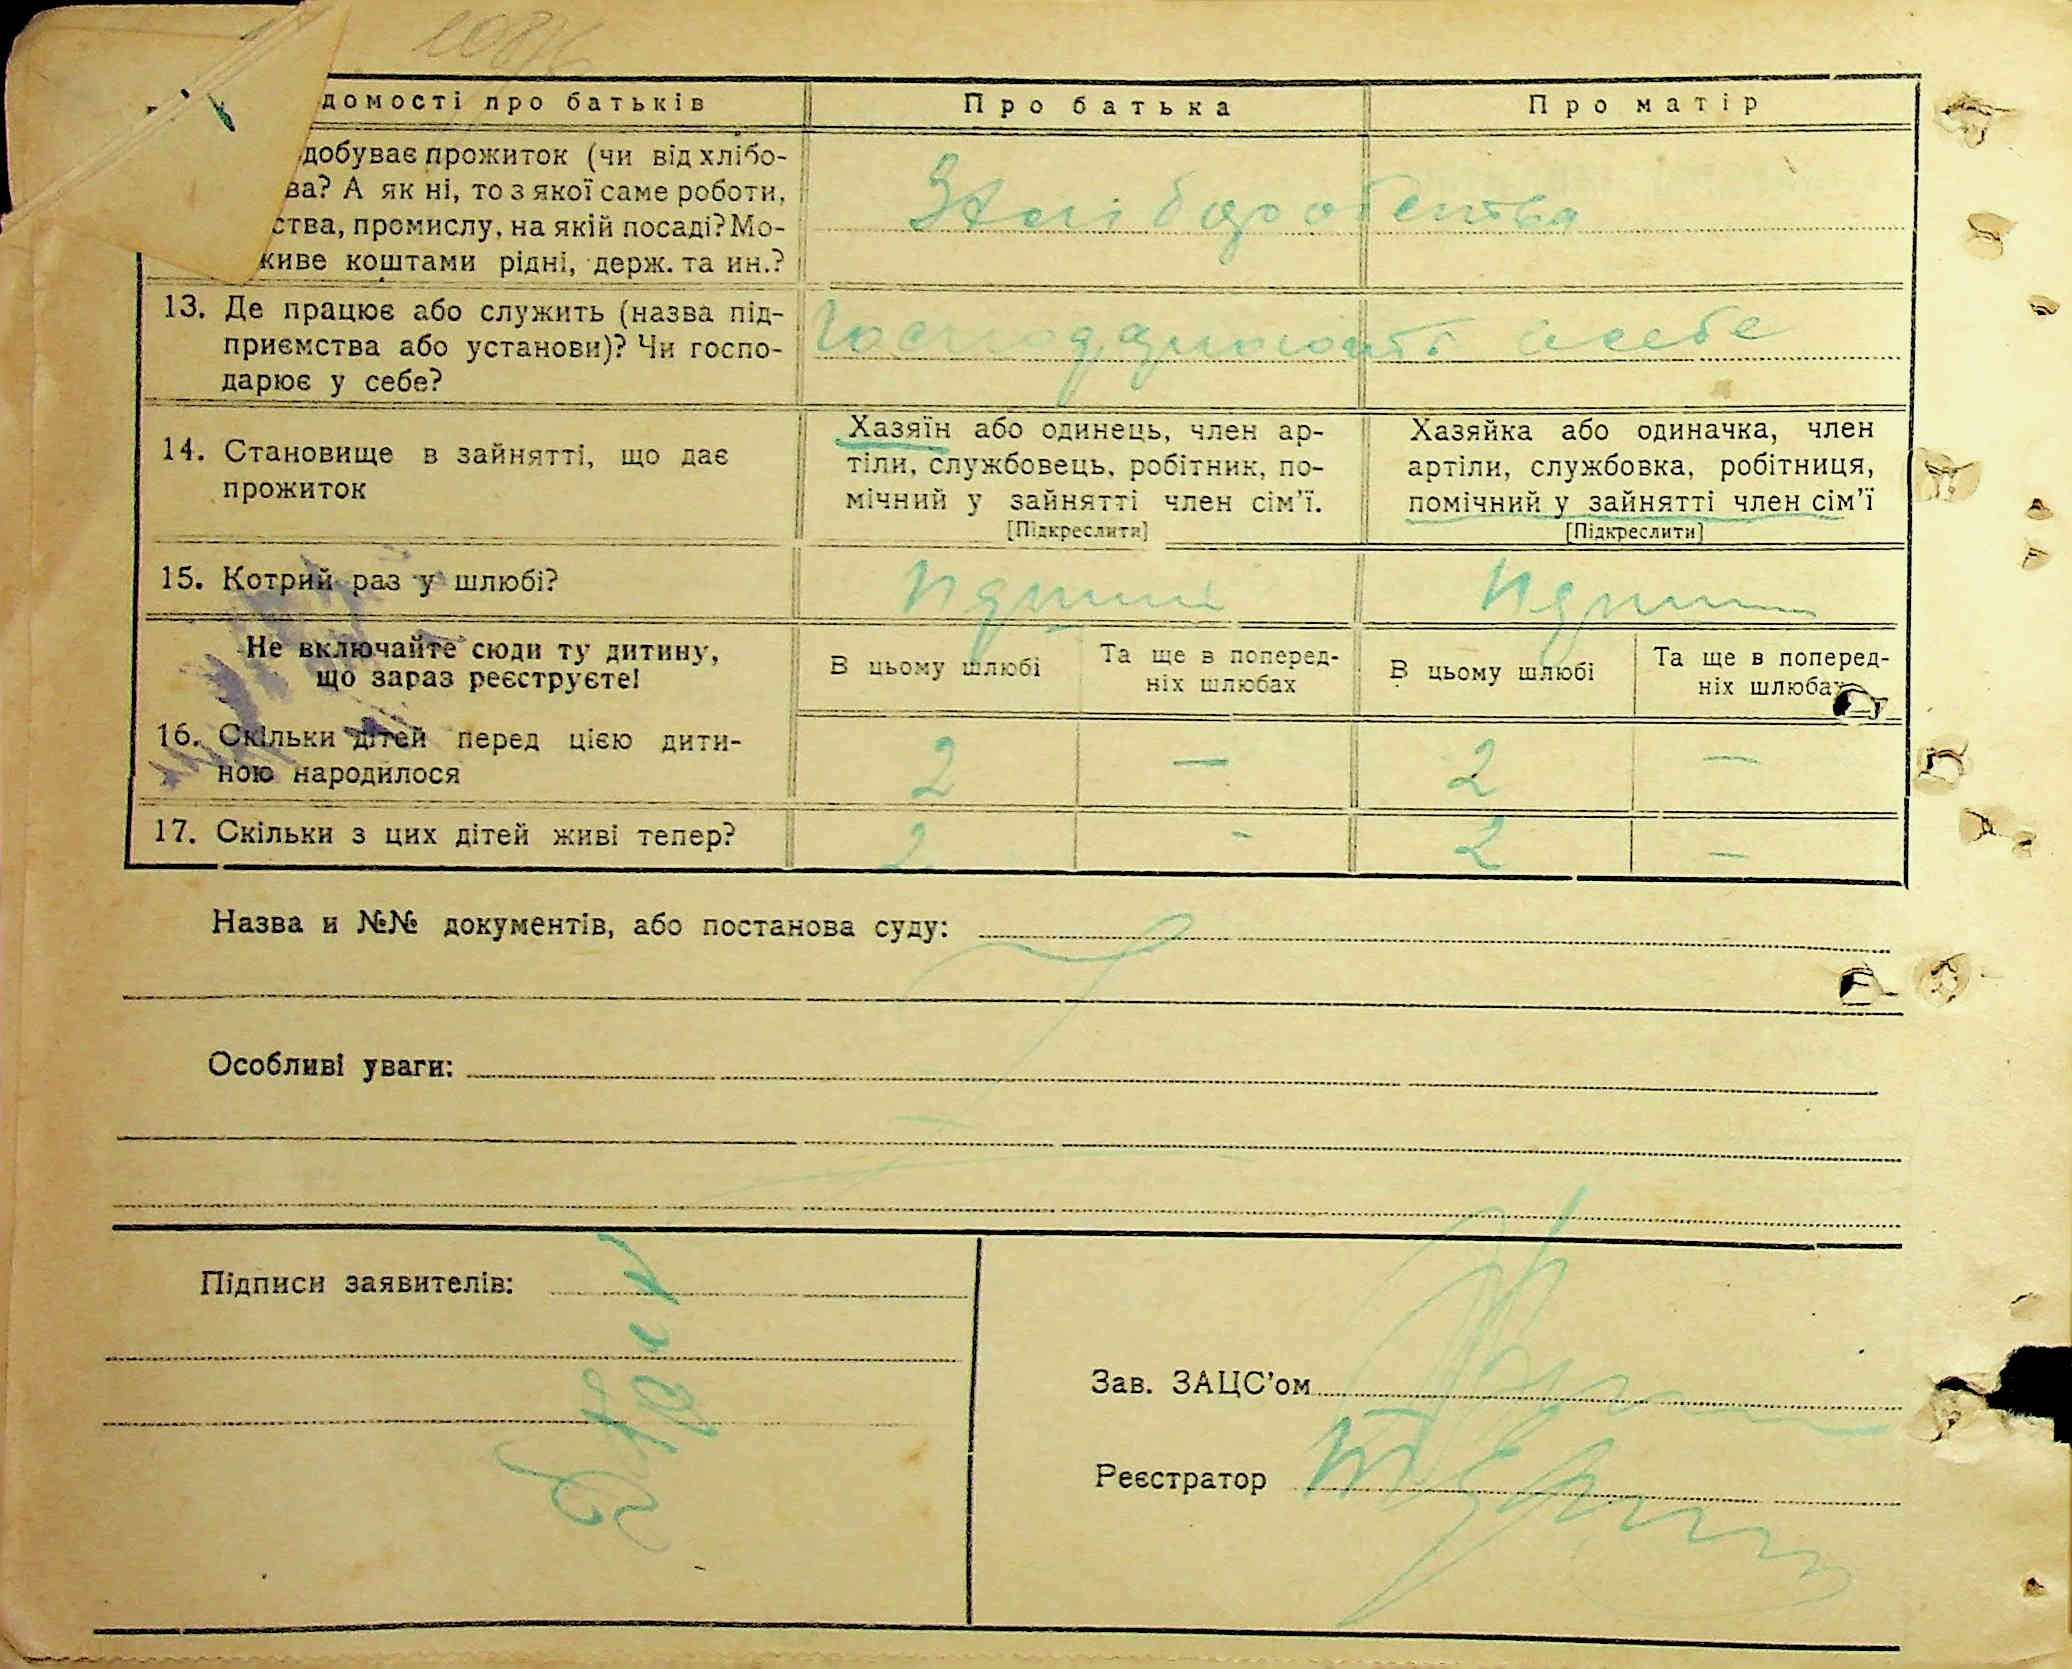 домості про батьків Про батька Про матір
добуває прожиток (чи від хлібо-
ва? А як ні, то з якої саме роботи,
ства, промислу, на якій посаді? Мо-
живе коштами рідні, держ. та ин.?
З хліборобства
13. Де працює або служить (назва під-
приємства або установи)? Чи госпо-
дарює у себе?
Господарюють у себе
14. Становище в зайнятті, що дає
прожиток
Хазяїн або одинець, член ар-
тіли, службовець, робітник, по-
мічний у зайнятті член сім'ї.
[Підкреслити]
Хазяйка або одиначка, член
артіли, службовка, робітниця,
помічний у зайнятті член сім'ї
[Підкреслити]
15. Котрий раз у шлюбі?
Не включайте сюди ту дитину,
що зараз реєструєте!
В цьому шлюбі
Та ще в поперед-
ніх шлюбах
В цьому шлюбі
Та ще в поперед-
ніх шлюбах
16. Скільки дітей перед цією дити-
ною народилося
2 — 2 —
17. Скільки з цих дітей живі тепер?
2 - 2 —
Назва и №№ документів, або постанова суду:
Особливі уваги:
Підписи заявителів:
Зав. ЗАЦС'ом
Реєстратор